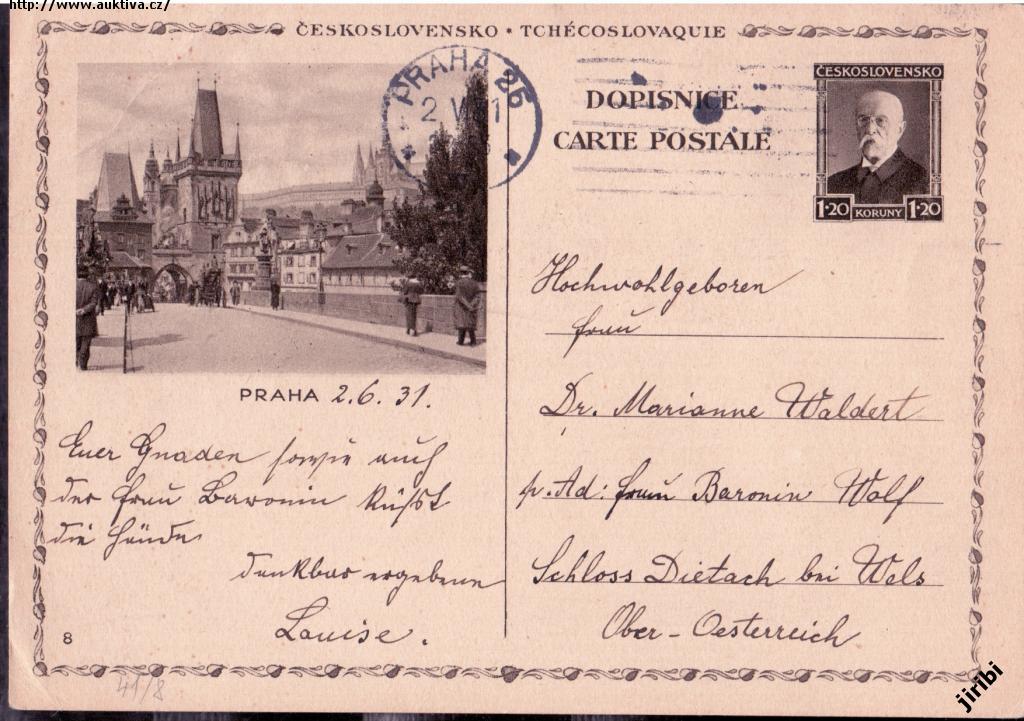 http://www.auktiva.cz/
ČESKOSLOVENSKO • TCHÉCOSLOVAQUIE
PRAHA 25
2 VI 31
DOPISNICE
CARTE POSTALE
ČESKOSLOVENSKO
1·20 KORUNY 1·20
PRAHA 2.6.31.
Euer Gnaden sowie auch
der Frau Baronin küßt
die Hände
dankbar ergebene
Louise.
Hochwohlgeboren
Frau
Dr. Marianne Waldert
p. Ad: Frau Baronin Wolf
Schloss Dietach bei Wels
Ober-Oesterreich
8
41/8
jiribi